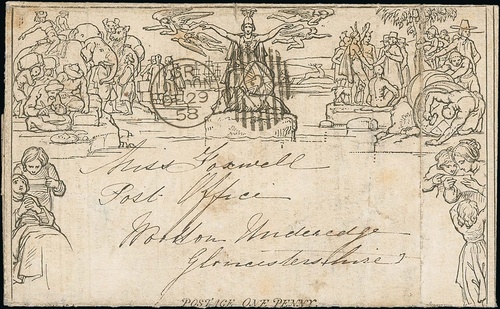 29
58
Miss Foxwell
Post Office
Wooton Underedge
Gloucestershire
POSTAGE ONE PENNY.